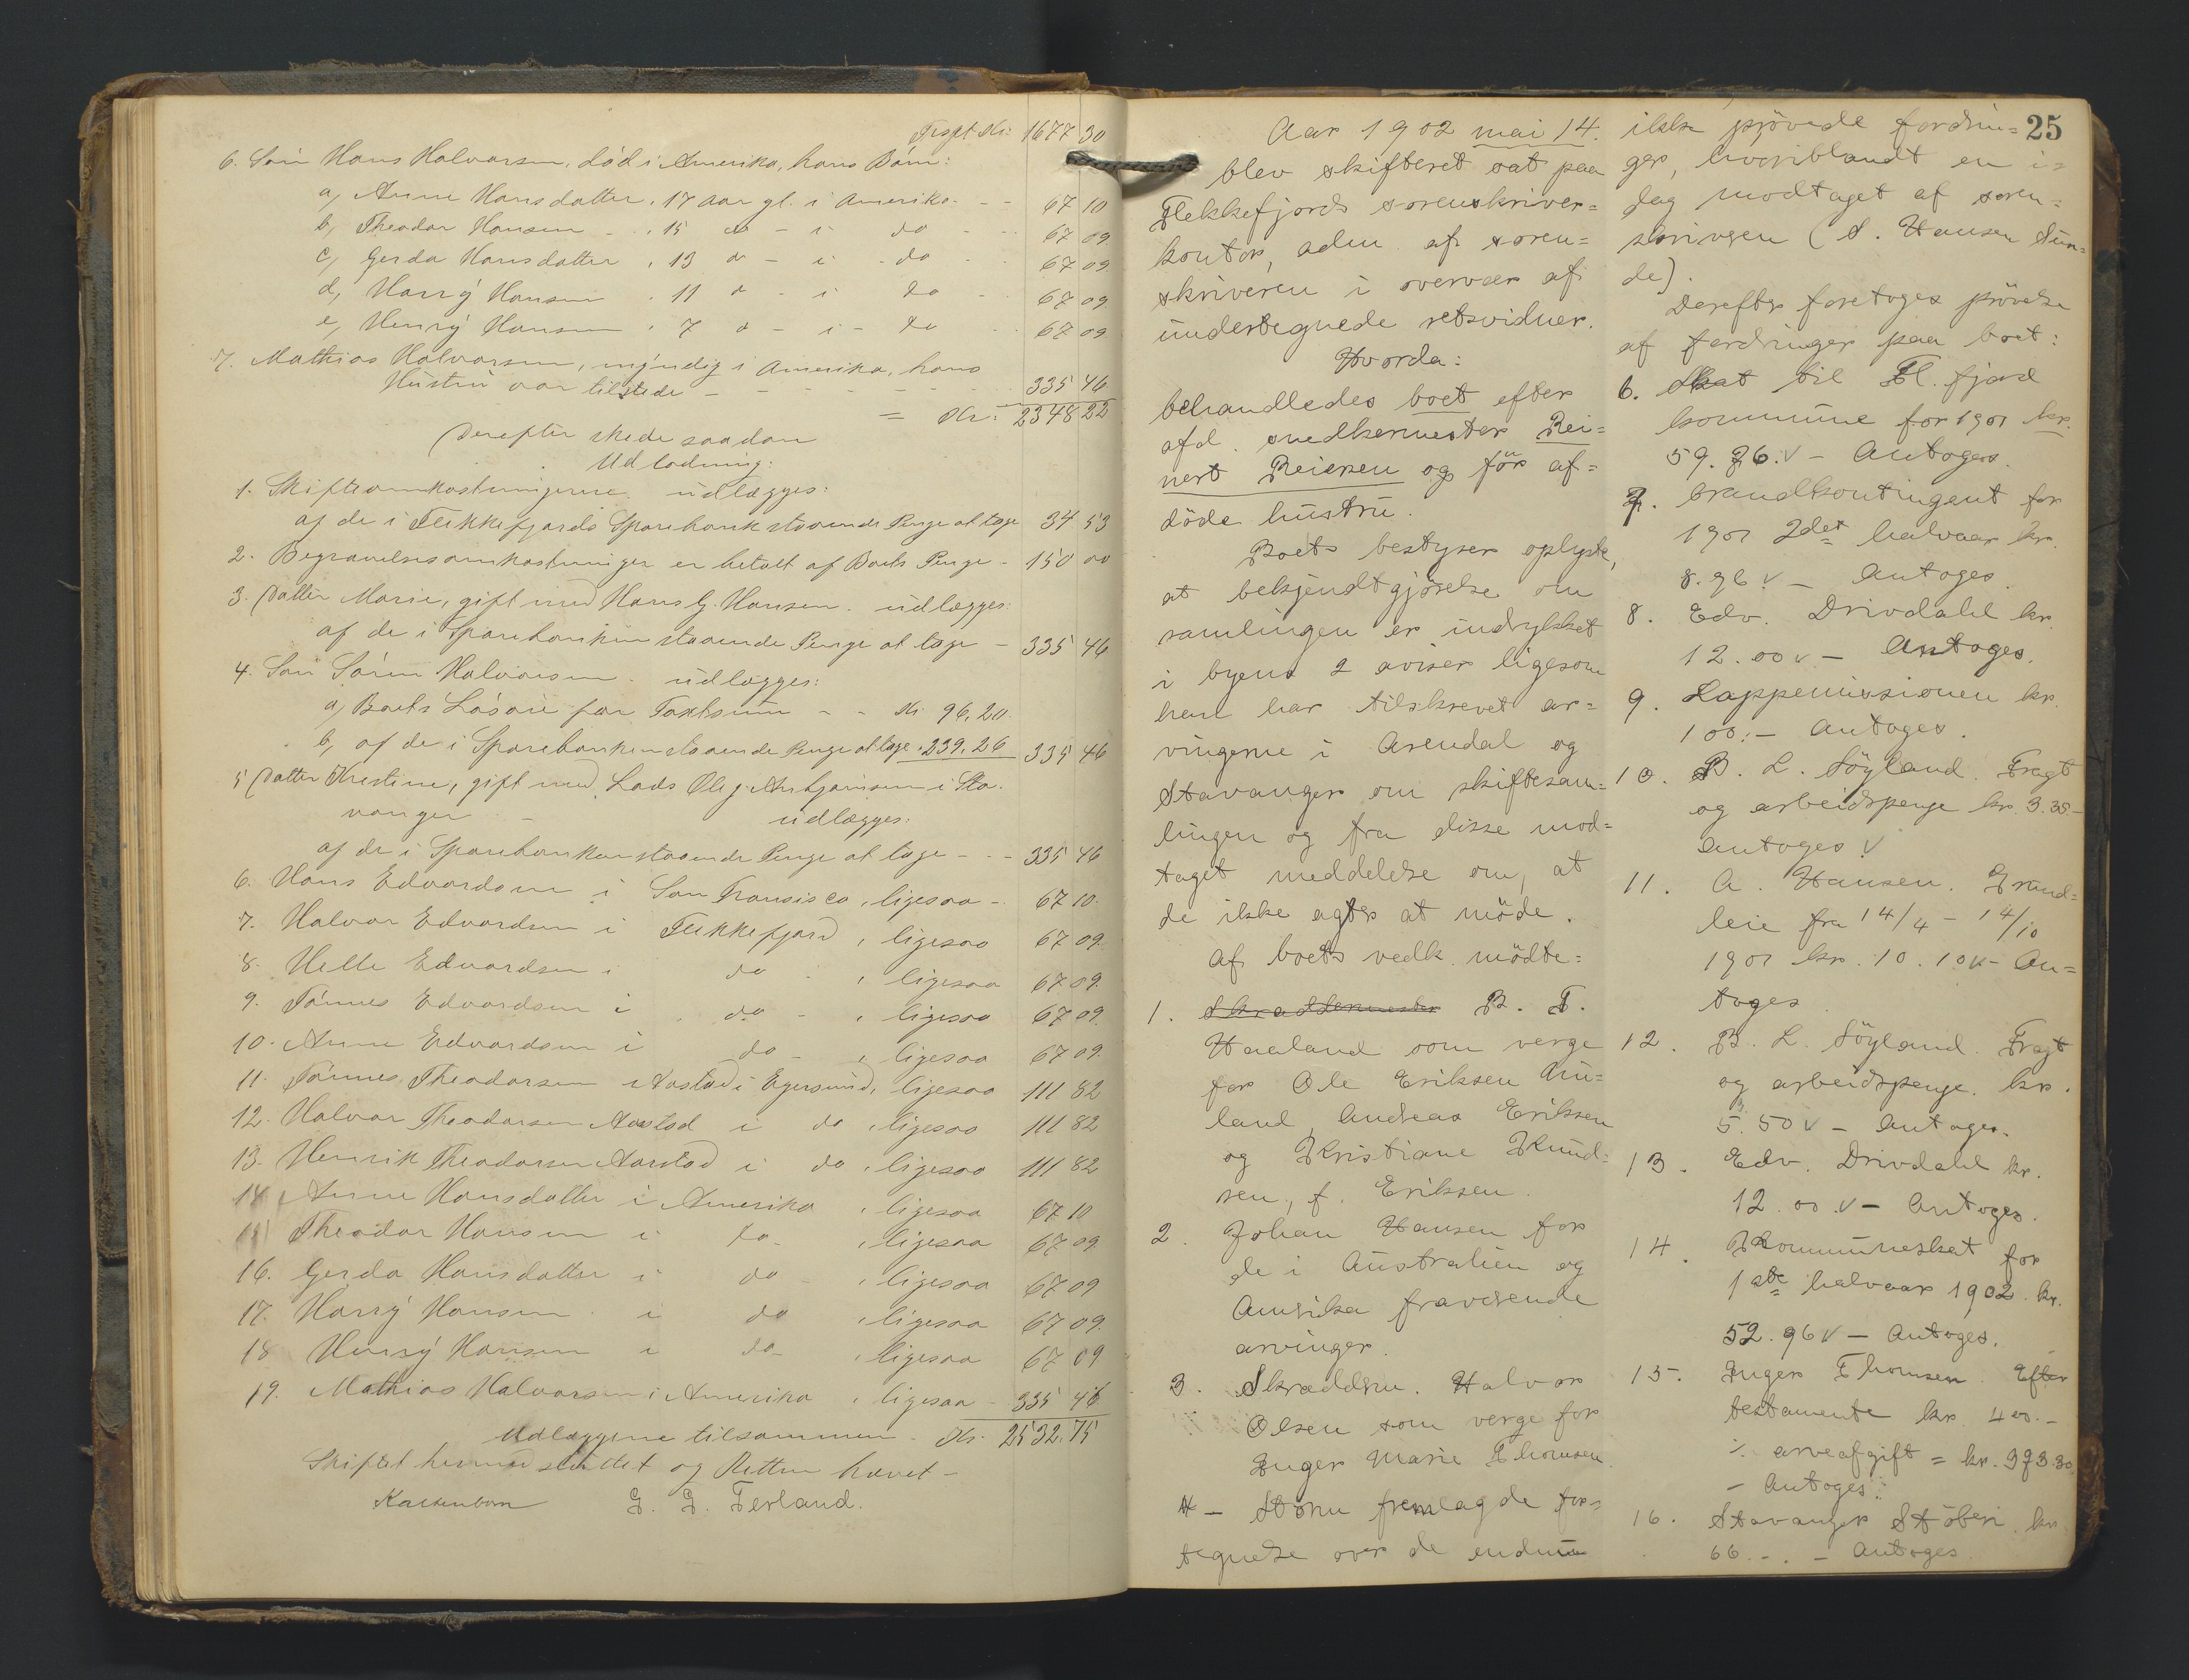 Trspt Kr: 1677 30
6. Søn Hans Halvorsen, død i Amerika, hans Børn:
a, Anne Hansdatter, 17 aar gl. i Amerika - - 67 10
b, Theodor Hansen - , 15 do - i do - - 67 09
c, Gerda Hansdatter , 13 do - i - do - - 67 09
d, Harrÿ Hansen , 11 do - i do - 67 09
e, Henrÿ Hansen , 7 do - i - do - - 67 09
7. Mathias Halvorsen, mÿndig i Amerika, hans
Hustru var tilstede - - - - - - 335 46
= Kr: 2348 22
Derefter skede saadan
Udlodning:
1. Skifteomkostningerne udlægges:
af de i Flekkefjords Sparebank staaende Penge at tage 34 53
2. Begravelsesomkostninger er betalt af Boets Penge - 150 00
3. Datter Marie, gift med Hans G. Hansen. udlægges:
af de i Sparebanken staaende Penge at tage - 335 46
4. Søn Søren Halvorsen. udlægges:
a, Boets Løsøre for Taxtsum - - Kr 96,20.
b, af de i Sparebanken staaende Penge at tage " 239,26 335 46
5 Datter Kristine, gift med Lods Ole J. i Sta-
vanger - udlægges:
af de i Sparebanken staaende Penge at tage - - - 335 46
6. Hans Edvardsen i San Fransisco, ligesaa - 67 10
7. Halvor Edvardsen i Flekkefjord, ligesaa 67 09
8. Helle Edvardsen i do , ligesaa 67 09
9. Tønnes Edvardsen i do - , ligesaa 67 09
10. Anne Edvardsen i do - , ligesaa 67 09
11. Tønnes Theodorsen Aarstad i Egersund, ligesaa 111 82
12. Halvor Theodorsen Aarstad i do , ligesaa 111 82
13. Henrik Theodorsen Aarstad i do , ligesaa 111 82
14 Anne Hansdatter i Amerika , ligesaa 67 10
15 Theodor Hansen i do - , ligesaa 67 09
16. Gerda Hansdatter i do - , ligesaa 67 09
17. Harrÿ Hansen i do , ligesaa 67 09
18 Henrÿ Hansen i do - , ligesaa 67 09
19. Mathias Halvorsen i Amerika , ligesaa - 335 46
Udlæggene tilsammen - Kr. 2532.75
Skiftet hermed sluttet og Retten hævet -
Kaltenborn G. G. Terland.
25
Aar 1902 mai 14.
blev skifteret sat paa
Flekkefjords sorenskriver=
kontor, adm. af soren=
skriveren i overvær af
undertegnede retsvidner.
Hvorda:
behandledes boet efter
afd. snedkermester Rei=
nert Reiersen og før af=
døde hustru.
Boets bestyrer oplyste,
at bekjendtgjørelse om
samlingen er indrykket
i byens 2 aviser ligesom
han har tilskrevet ar=
vingerne i Arendal og
Stavanger om skiftesam=
lingen og fra disse mod=
taget meddelelse om, at
de ikke agter at møde.
Af boets vedk. mødte=
1. Skræddermester B. T.
Haaland som verge
for Ole Eriksen Au=
land, Andreas Eriksen
og Kristiane Knud=
sen, f. Eriksen.
2. Johan Hansen for
de i Australien og
Amerika fraværende
arvinger.
3. Skræddru. Halvor
Olsen som verge for
Inger Marie Thomsen.
4 - fremlagde for=
tegnelse over de endnu
ikke prøvede fordrin=
ger, hvoriblandt en i=
dag modtaget af soren=
skriveren (S. Hansen Sun=
de).
Derefter foretoges prøvelse
af fordringer paa boet:
6. Skat til Fl. fjord
kommune for 1901 kr.
59.76. v - Antoges.
7. Brandkontingent for
1901 2det halvaar kr.
8.96 v - Antoges.
8. Edv. Drivdahl kr.
12.00 v - Antoges.
9. Lappemissionen kr.
100.- Antoges.
10. B. L. Søyland. Fragt
og arbeidspenge kr. 3.35.-
Antoges. v
11. A. Hansen. Grund=
leie fra 14/4 - 14/10
1901 kr. 10.10 v - An=
toges.
12. B. L. Søyland. Fragt
og arbeidspenge. kr.
5.50 v - Antoges.
13. Edv. Drivdahl kr.
12.00. v - Antoges.
14. Kommuneskat for
1ste halvaar 1902. kr.
52.96 v - Antoges.
15. Inger Thomsen. Efter
testamente kr. 400.-
÷ arveafgift = kr. 373.30
- Antoges.
16. Stavanger Støberi. kr.
66.-. - Antoges